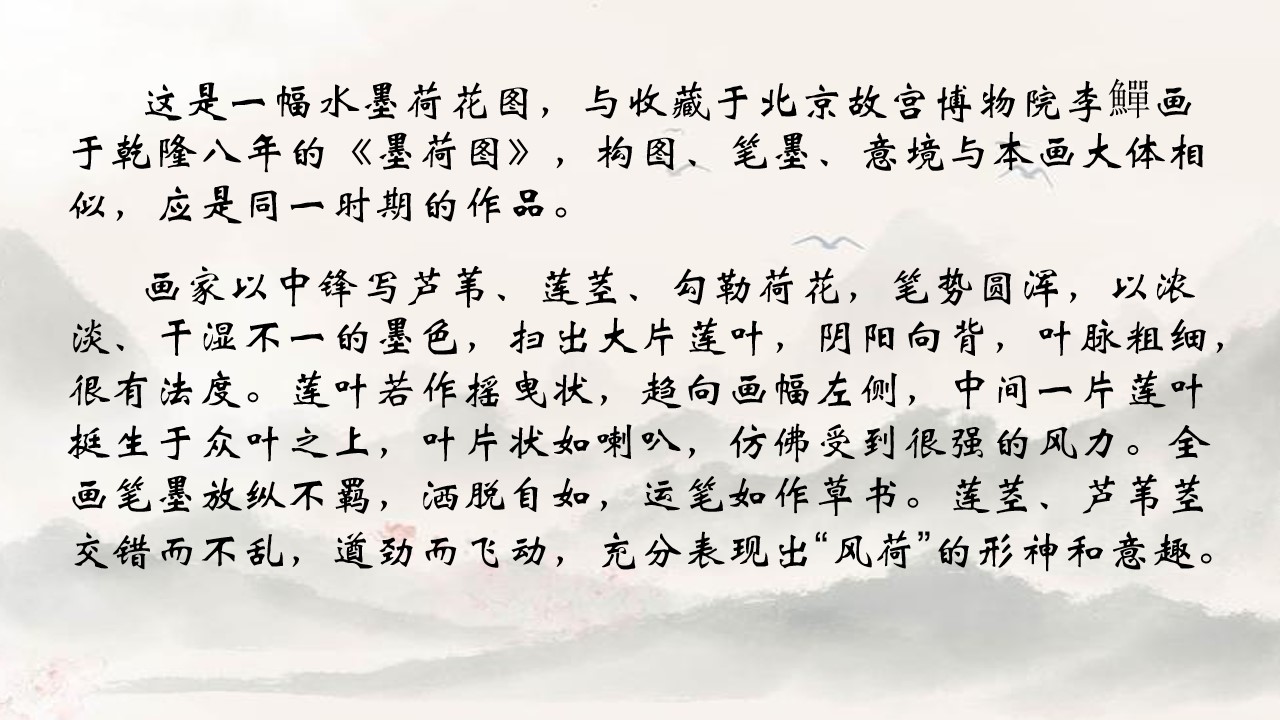 这是一幅水墨荷花图，与收藏于北京故宫博物院李鱓画
于乾隆八年的《墨荷图》，构图、笔墨、意境与本画大体相
似，应是同一时期的作品。
画家以中锋写芦苇、莲茎、勾勒荷花，笔势圆浑，以浓
淡、干湿不一的墨色，扫出大片莲叶，阴阳向背，叶脉粗细，
很有法度。莲叶若作摇曳状，趋向画幅左侧，中间一片莲叶
挺生于众叶之上，叶片状如喇叭，仿佛受到很强的风力。全
画笔墨放纵不羁，洒脱自如，运笔如作草书。莲茎、芦苇茎
交错而不乱，遒劲而飞动，充分表现出“风荷”的形神和意趣。